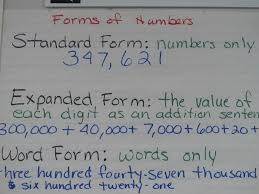 Forms of Numbers
Standard Form: numbers only
347,621
Expanded Form: the value of
each digit as an addition senten
300,000 + 40,000+ 7,000+600+20+
Word Form: words only
three hundred fourty-seven thousand
& six hundred twenty-one